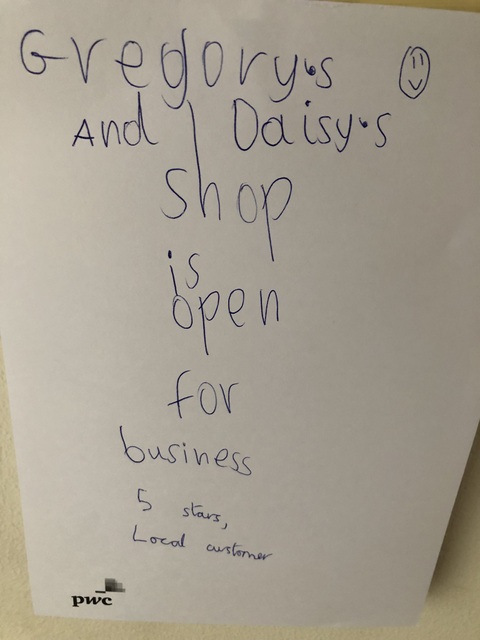 Gregory's
And Daisy's
Shop
is
open
for
business
5 stars,
Local customer
pwc